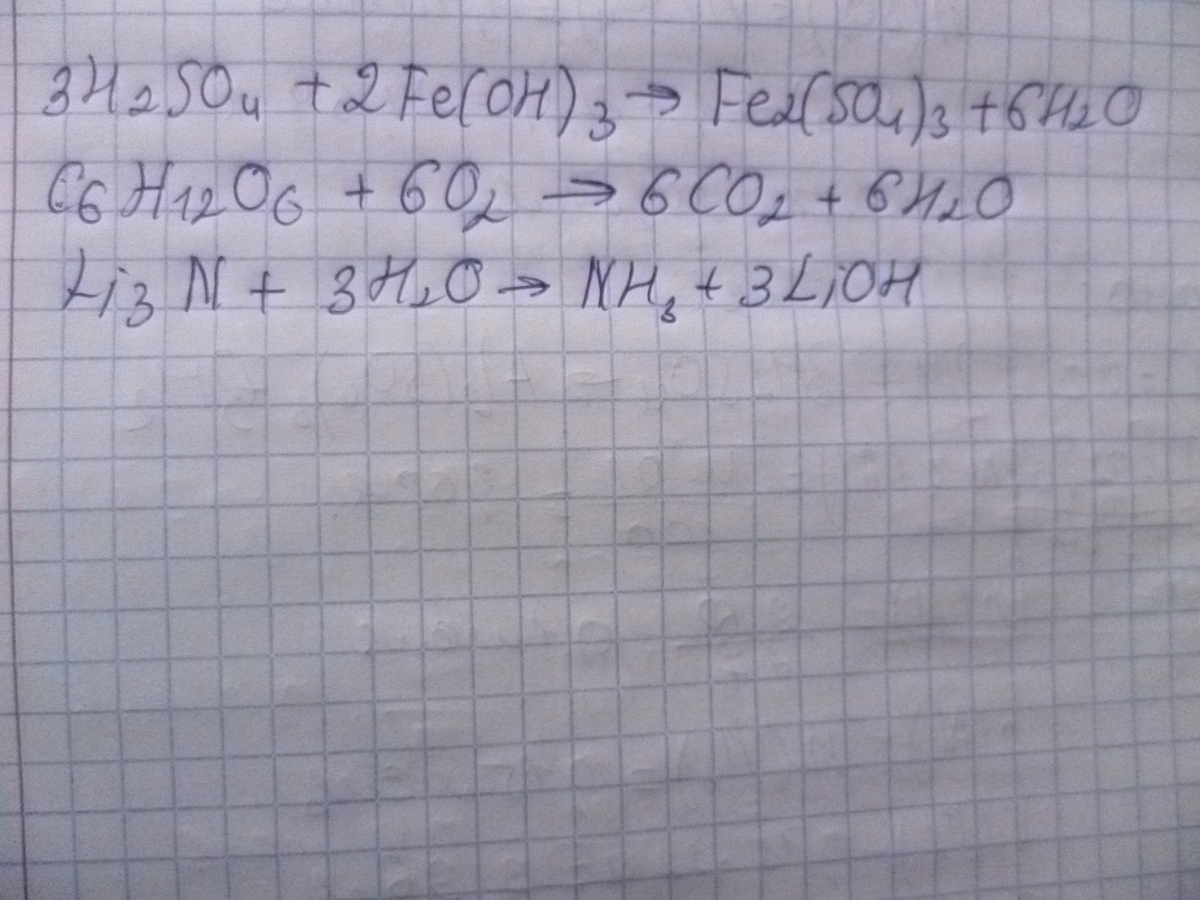 3H₂SO₄ + 2Fe(OH)₃ → Fe₂(SO₄)₃ + 6H₂O
C₆H₁₂O₆ + 6O₂ → 6CO₂ + 6H₂O
Li₃N + 3H₂O → NH₃ + 3LiOH